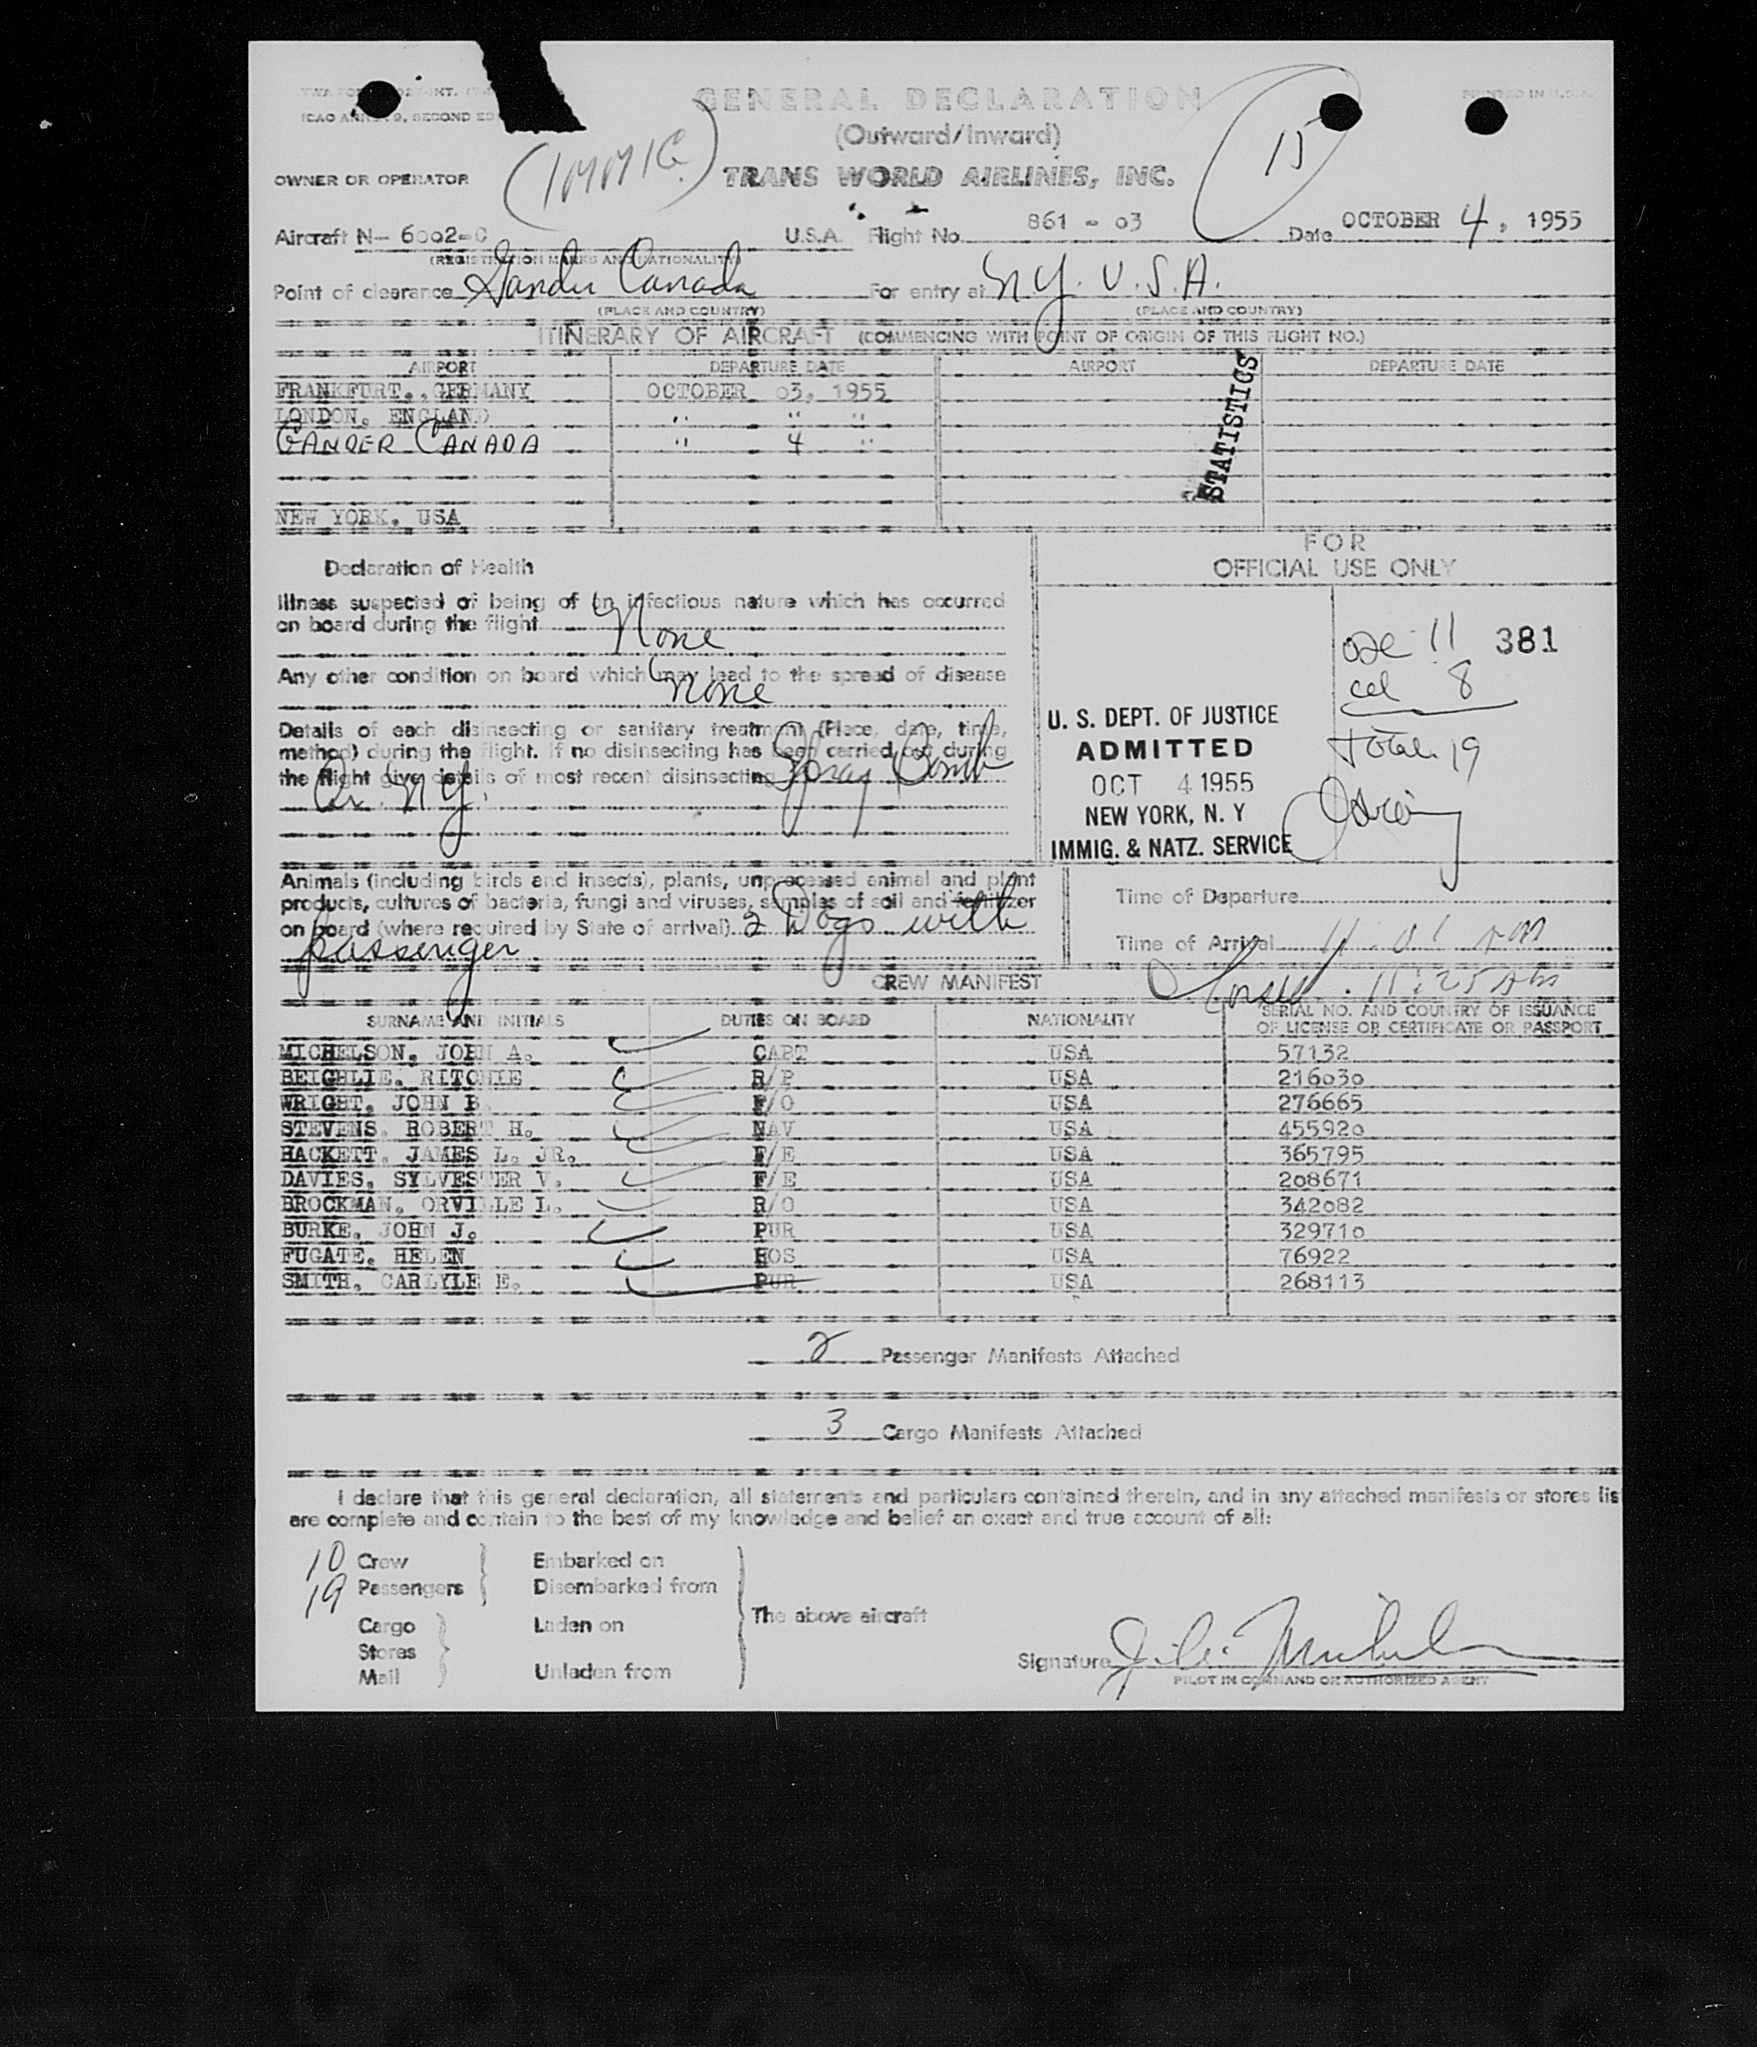 GENERAL DECLARATION
PRINTED IN U.S.A.
(Outward/Inward)
(IMMIG.)
15
OWNER OR OPERATOR
TRANS WORLD AIRLINES, INC.
Aircraft N- 6002-C U.S.A. Flight No. 861 - 03 Date OCTOBER 4, 1955
(REGISTRATION MARKS AND NATIONALITY)
Point of clearance Gander Canada For entry at N.Y. U.S.A.
(PLACE AND COUNTRY) (PLACE AND COUNTRY)
ITINERARY OF AIRCRAFT (COMMENCING WITH POINT OF ORIGIN OF THIS FLIGHT NO.)
AIRPORT DEPARTURE DATE AIRPORT DEPARTURE DATE
FRANKFURT, GERMANY OCTOBER 03, 1955
LONDON, ENGLAND " " "
GANDER CANADA " 4 "
STATISTICS
NEW YORK, USA
FOR
OFFICIAL USE ONLY
Declaration of Health
Illness suspected of being of an infectious nature which has occurred
on board during the flight None
Any other condition on board which may lead to the spread of disease
none
Details of each disinsecting or sanitary treatment (Place, date, time,
method) during the flight. If no disinsecting has been carried out during
the flight give details of most recent disinsecting Spray Bomb
Ar. N.Y.
11 381
8
Total 19
U. S. DEPT. OF JUSTICE
ADMITTED
OCT 4 1955
NEW YORK, N. Y
IMMIG. & NATZ. SERVICE
Animals (including birds and insects), plants, unprocessed animal and plant
products, cultures of bacteria, fungi and viruses, samples of soil and fertilizer
on board (where required by State of arrival) 2 Dogs with
passenger
Time of Departure
Time of Arrival 11:01 AM
11:25 Am
CREW MANIFEST
SURNAME AND INITIALS DUTIES ON BOARD NATIONALITY SERIAL NO. AND COUNTRY OF ISSUANCE
OF LICENSE OR CERTIFICATE OR PASSPORT
MICHELSON, JOHN A. CAPT USA 57132
BEIGHLIE, RITCHIE R/P USA 216030
WRIGHT, JOHN B. F/O USA 276665
STEVENS, ROBERT H. NAV USA 455920
HACKETT, JAMES L. JR. F/E USA 365795
DAVIES, SYLVESTER V. F/E USA 208671
BROCKMAN, ORVILLE L. R/O USA 342082
BURKE, JOHN J. PUR USA 329710
FUGATE, HELEN HOS USA 76922
SMITH, CARLYLE E. PUR USA 268113
2 Passenger Manifests Attached
3 Cargo Manifests Attached
I declare that this general declaration, all statements and particulars contained therein, and in any attached manifests or stores lis
are complete and contain to the best of my knowledge and belief an exact and true account of all:
10 Crew Embarked on
19 Passengers Disembarked from
The above aircraft
Cargo Laden on
Stores
Mail Unladen from
Signature
PILOT IN COMMAND OR AUTHORIZED AGENT